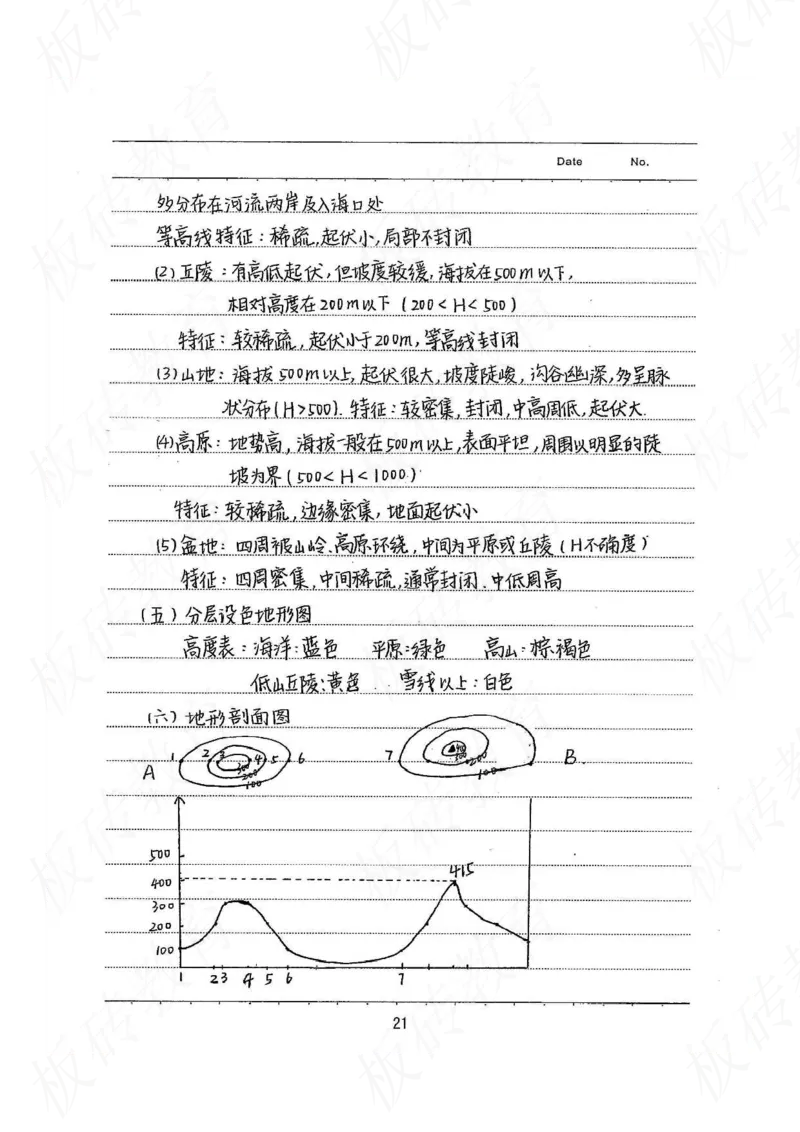 Date No.
多分布在河流两岸及入海口处
等高线特征：稀疏，起伏小，局部不封闭
(2)丘陵：有高低起伏，但坡度较缓，海拔在500m以下，
相对高度在200m以下（200＜H＜500）
特征：较稀疏，起伏小于200m，等高线封闭
(3)山地：海拔500m以上，起伏很大，坡度陡峻，沟谷幽深，多呈脉
状分布(H>500)．特征：较密集，封闭，中高周低，起伏大．
(4)高原：地势高，海拔一般在500m以上，表面平坦，周围以明显的陡
坡为界（500＜H＜1000．）
特征：较稀疏，边缘密集，地面起伏小
(5)盆地：四周被山岭、高原环绕，中间为平原或丘陵（H不确度）
特征：四周密集，中间稀疏，通常封闭．中低周高
（五）分层设色地形图
高度表：海洋：蓝色 平原：绿色 高山：棕褐色
低山丘陵：黄色 雪线以上：白色
（六）地形剖面图
1 2 3 4 5 6 7
A 300 200 100 200 100 B
415
500
400
300
200
100
1 2 3 4 5 6 7
21
板砖教育